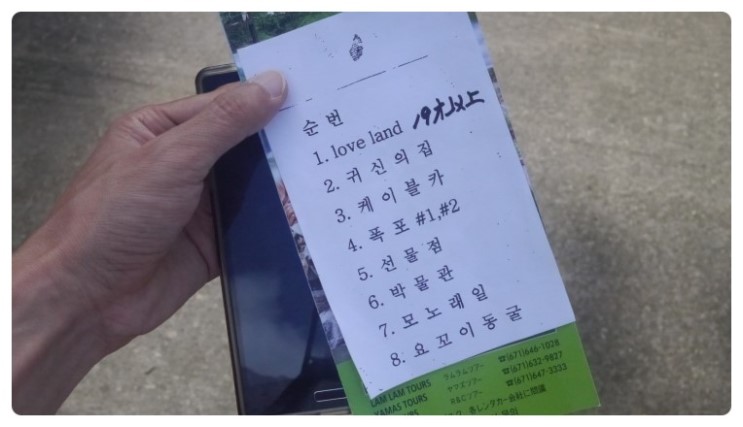 순 번
1. love land 19才以上
2. 귀 신 의 집
3. 케 이 블 카
4. 폭 포 #1,#2
5. 선 물 점
6. 박 물 관
7. 모 노 래 일
8. 요 꼬 이 동 굴
☎(671)646-1028
LAM LAM TOURS ラムラムツアー ☎(671)632-9827
KAMAS TOURS ヤマズツアー ☎(671)647-3333
TOURS R&Cツアー
各レンタカー会社に間